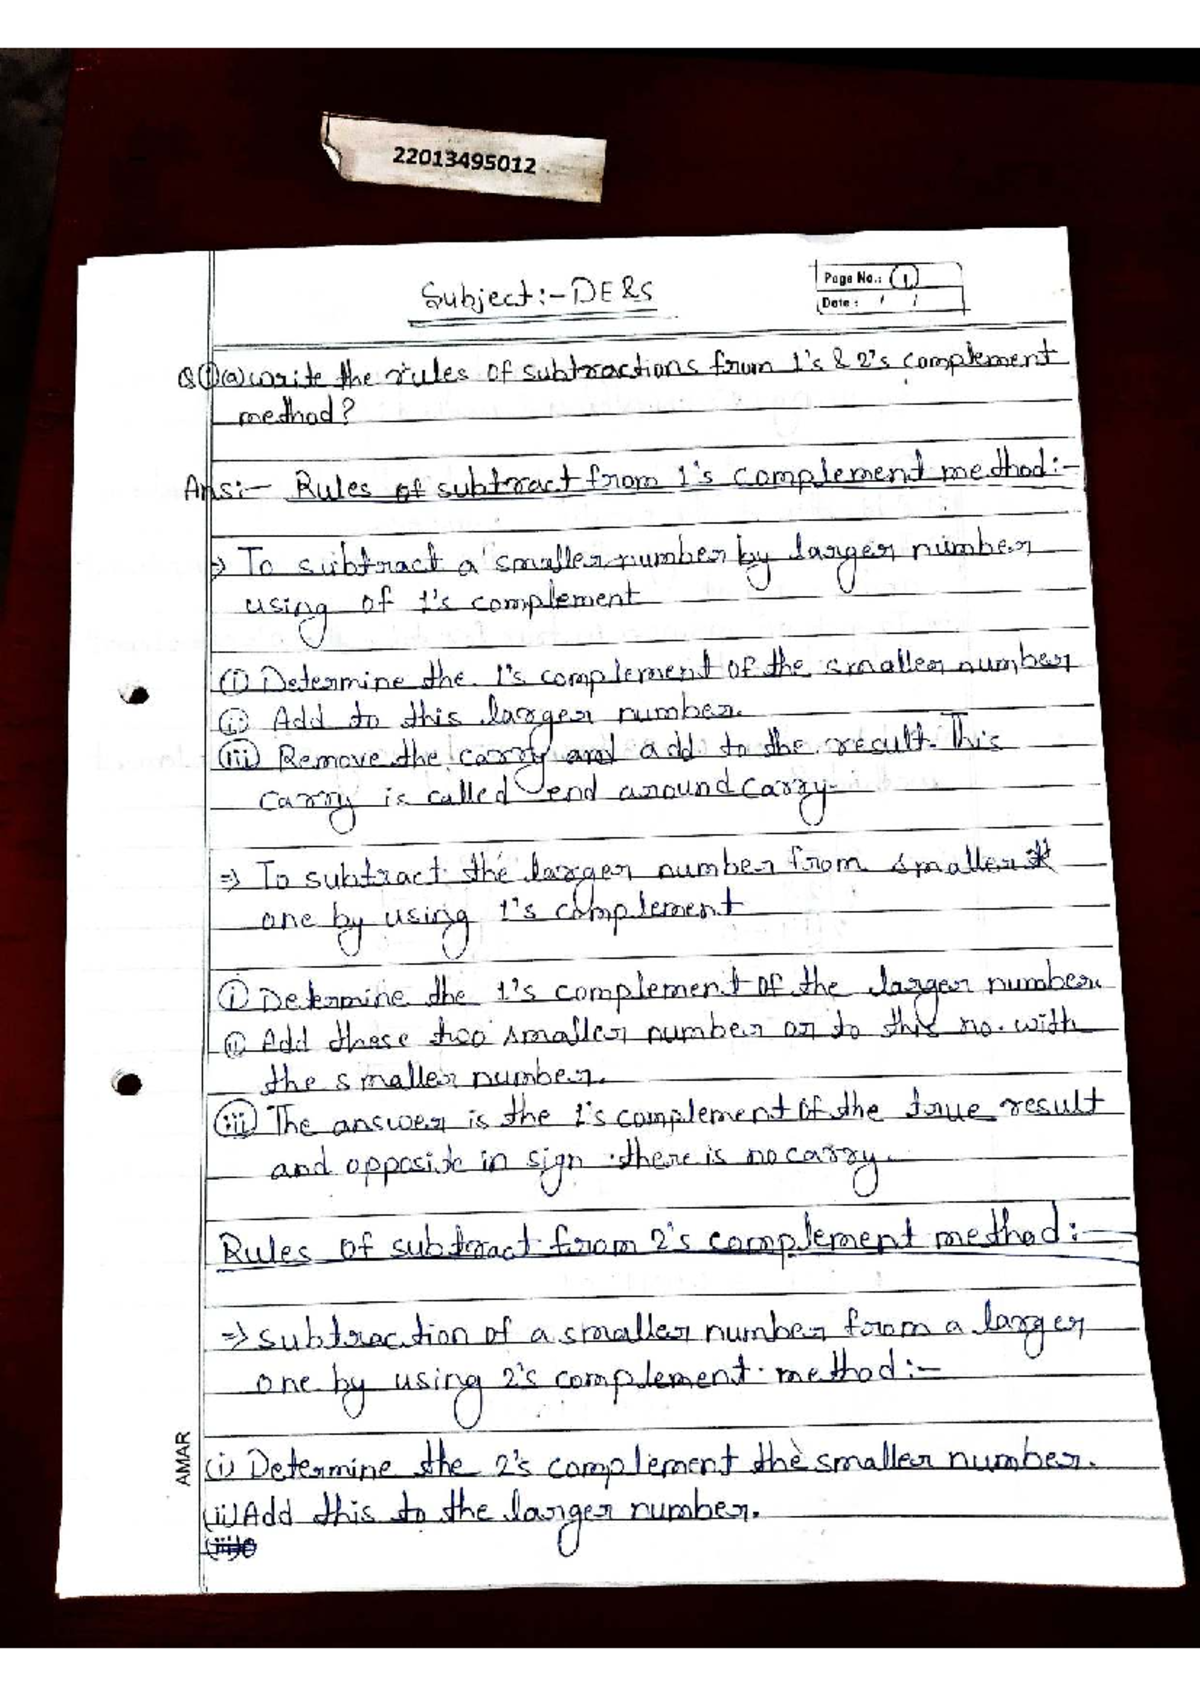 22013495012
Subject:- DE&S
Page No.: 1
Date: / /
Q(1)(a) write the rules of subtractions from 1's & 2's complement
method?
Ans:- Rules of subtract from 1's complement method:-
⇒ To subtract a smaller number by larger number
using of 1's complement
(i) Determine the 1's complement of the smaller number
(ii) Add to this larger number.
(iii) Remove the carry and add to the result. This
carry is called end around carry.
⇒ To subtract the larger number from smaller
one by using 1's complement
(i) Determine the 1's complement of the larger number.
(ii) Add these two smaller number or to this no. with
the smaller number.
(iii) The answer is the 1's complement of the true result
and opposite in sign there is no carry.
Rules of subtract from 2's complement method:-
⇒ subtraction of a smaller number from a larger
one by using 2's complement method:-
(i) Determine the 2's complement the smaller number.
(ii) Add this to the larger number.
AMAR